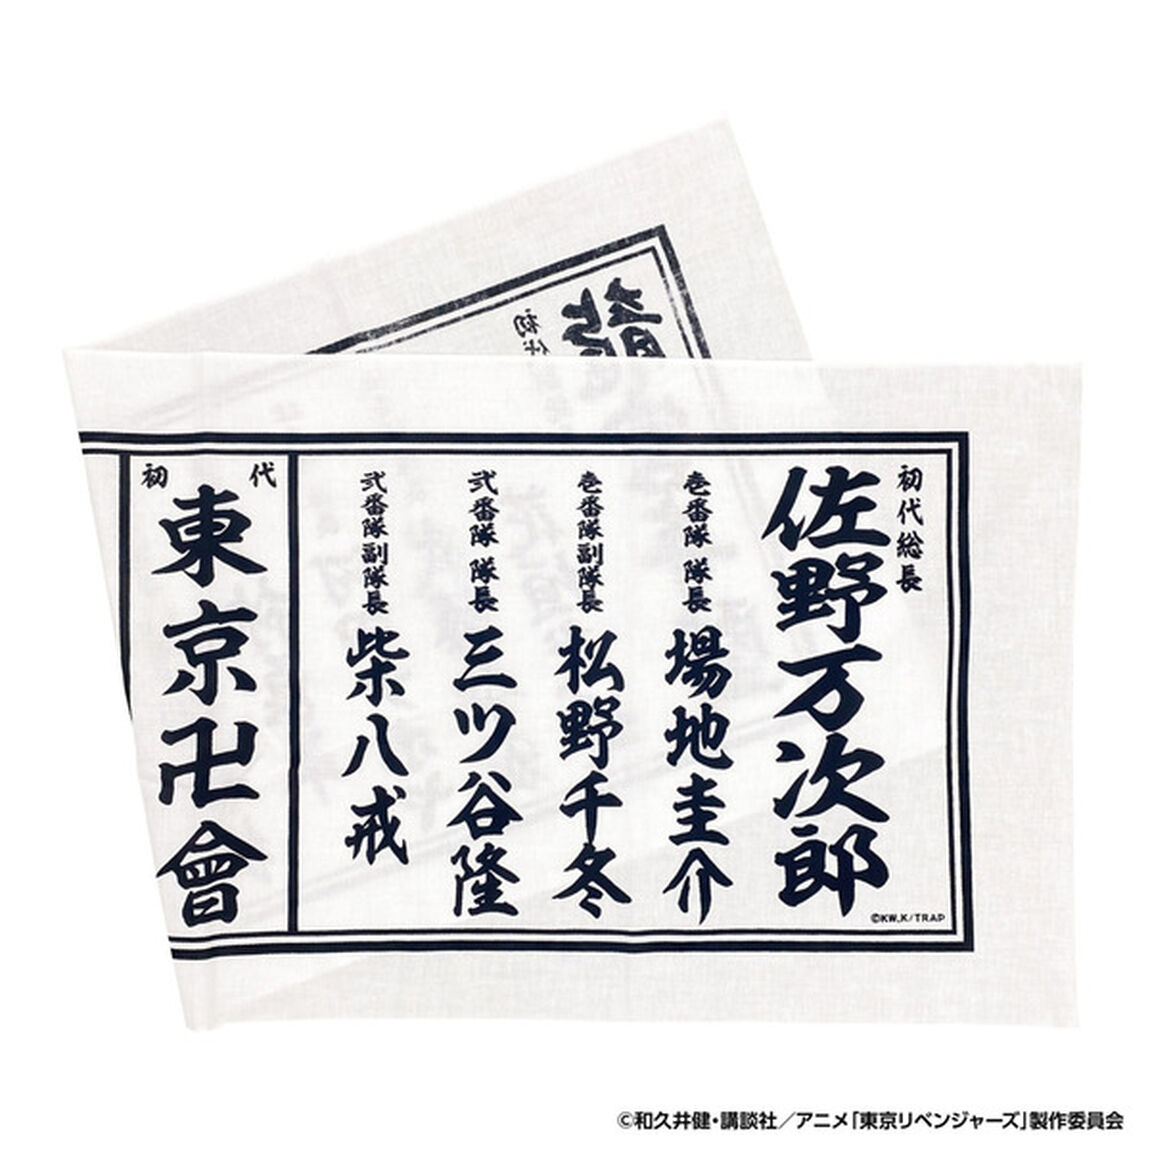 初代総長
佐野万次郎
壱番隊 隊長
場地圭介
壱番隊副隊長
松野千冬
弐番隊 隊長
三ツ谷隆
弐番隊副隊長
柴八戒
初代
東京卍會
©KW,K/TRAP
初代
龍
©和久井健・講談社／アニメ「東京リベンジャーズ」製作委員会